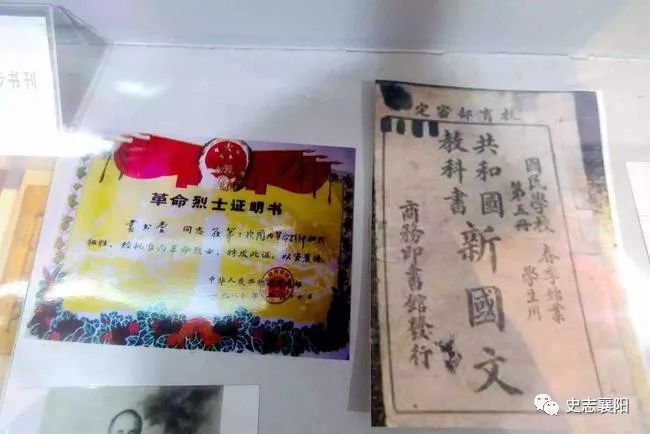 步书刊
革命烈士证明书
书堂 同志在第二次国内革命战争中
牺牲,经批准为革命烈士,特发此证,以资褒扬。
中华人民共和国民政部
教育部審定
國民學校 春季始業
第五冊 學生用
共和國 教科書
新國文
商務印書館發行
史志襄阳